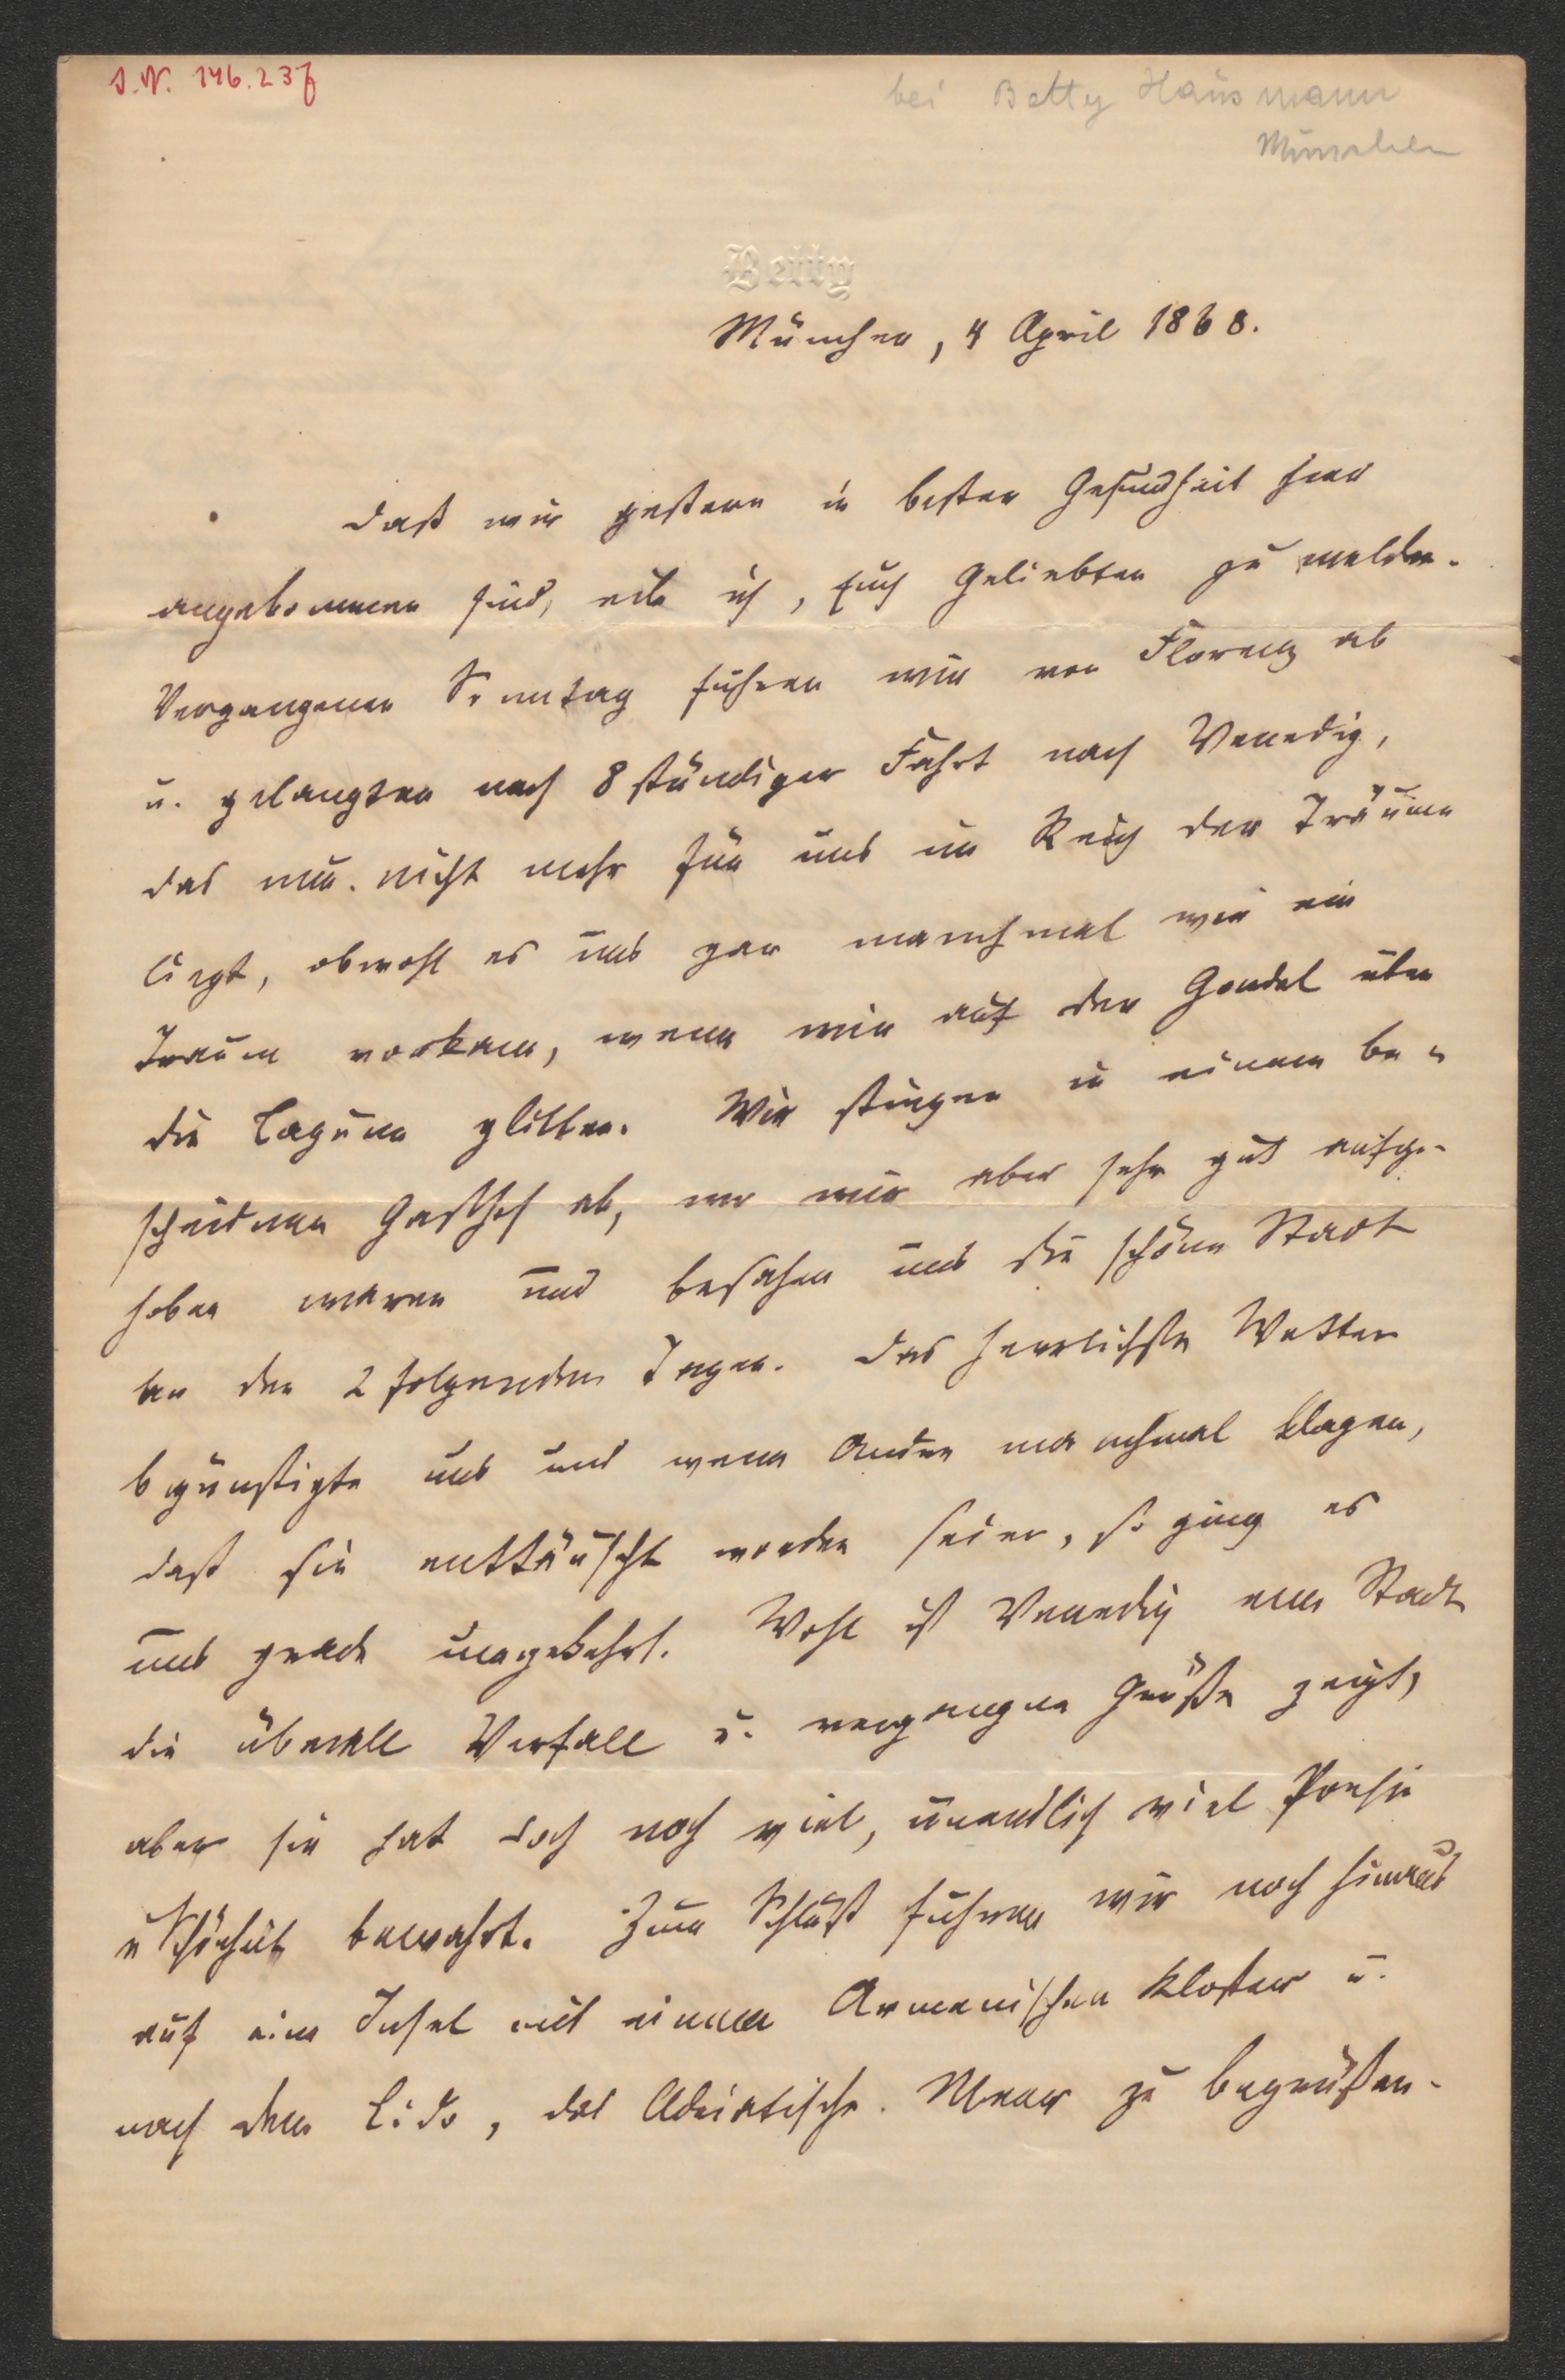 J.N. 146.237
bei Betty Hausmann
München
Betty
München, 4 April 1868.
Daß wir gestern in bester Gesundheit hier
angekommen sind, eile ich, Euch Geliebten zu melden.
Vergangenen Sonntag fuhren wir von Florenz ab
u. gelangten nach 8 stündiger Fahrt nach Venedig,
das nun nicht mehr für uns im Reich der Träume
liegt, obwohl es uns gar manchmal wie ein
Traum vorkam, wenn wir auf der Gondel über
die Lagune glitten. Wir stiegen in einem be-
scheidenen Gasthof ab, wo wir aber sehr gut aufge-
hoben waren und besahen uns die schöne Stadt
an den 2 folgenden Tagen. Das herrlichste Wetter
begünstigte uns und wenn Andre manchmal klagen,
daß sie enttäuscht worden seien, so ging es
uns grade umgekehrt. Wohl ist Venedig eine Stadt
die überall Verfall u. vergangne Größe zeigt,
aber sie hat doch noch viel, unendlich viel Poesie
u Schönheit bewahrt. Zum Schluß fuhren wir noch hinaus
auf eine Insel mit einem Armenischen Kloster u.
nach dem Lido, das Adriatische Meer zu begrüßen.